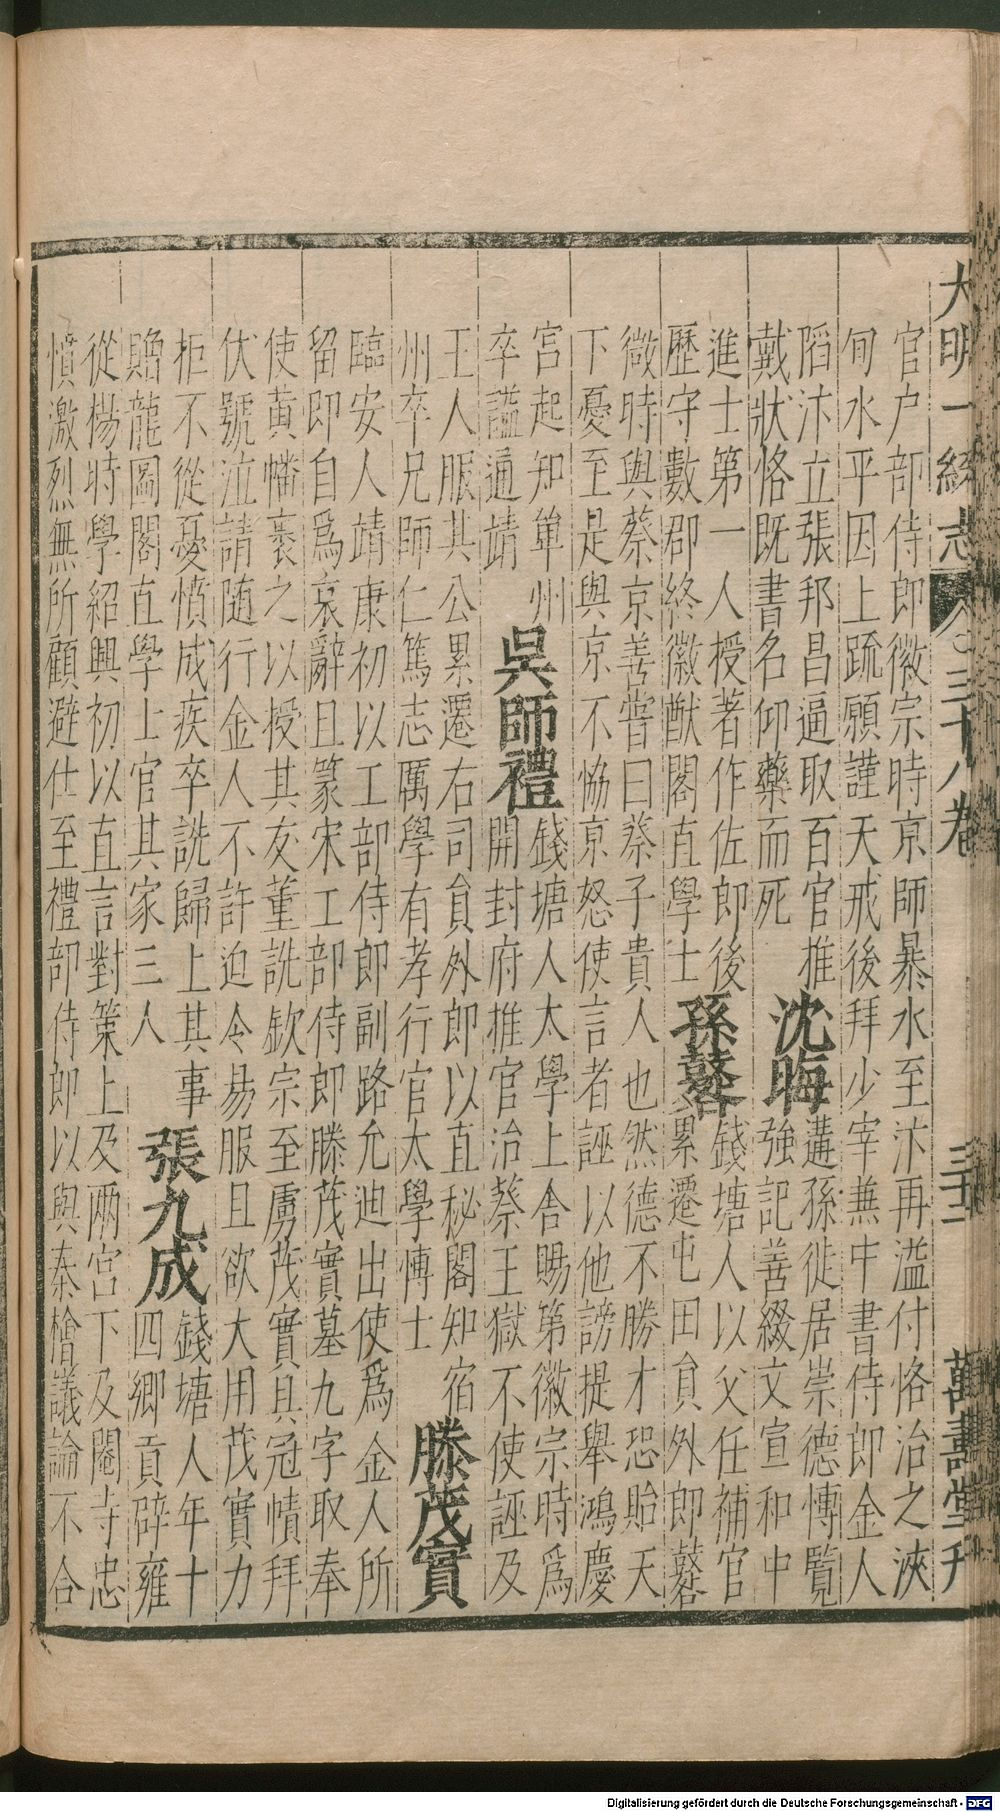 大明一統志 三十八卷 三十二 萬壽堂刊
官户部侍郎徽宗時京師暴水至汴再溢付恪治之浹
旬水平因上䟽願謹天戒後拜少宰蒹中書侍郎金人
䧟汴立張邦昌逼取百官推
戴狀恪既書名仰藥而死 沈晦 遘孫徙居崇德愽覽強記善綴文宣和中
進士第一人授著作佐郎後
歷守數郡終徽猷閣直學士 孫䕫 錢塘人以父任補官累遷屯田貟外郎䕫
微時與蔡京善嘗曰蔡子貴人也然德不勝才恐貽天
下憂至是與京不恊京怒使言者誣以他謗提舉鴻慶
宫起知單州
卒謚通靖 吳師禮 錢塘人太學上舍賜第徽宗時爲開封府推官治蔡王獄不使誣及
王人服其公累遷右司貟外郎以直秘閣知宿
州卒兄師仁篤志厲學有孝行官太學愽士 滕茂實
臨安人靖康初以工部侍郎副路允迪出使爲金人所
留即自爲哀辭且篆宋工部侍郎滕茂實墓九字取奉
使黄幡裹之以授其友董詵欽宗至虜茂實具冠幘拜
伏號泣請随行金人不許迫令易服且欲大用茂實力
柜不從憂憤成疾卒詵歸上其事
贈龍圖閣直學士官其家三人 張九成 錢塘人年十四鄉貢辟雍
從楊時學紹興初以直言對策上及兩宫下及閹寺忠
憤激烈無所顧避仕至禮部侍郎以與秦檜議論不合
Digitalisierung gefördert durch die Deutsche Forschungsgemeinschaft - DFG